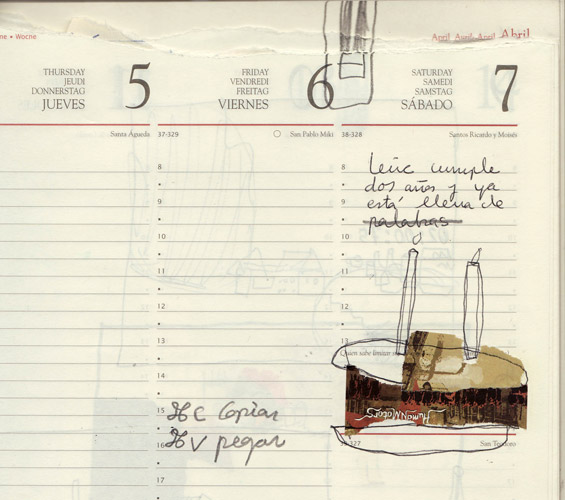 ne • Woche
April April April Abril
THURSDAY
JEUDI
DONNERSTAG
JUEVES
5
FRIDAY
VENDREDI
FREITAG
VIERNES
6
SATURDAY
SAMEDI
SAMSTAG
SÁBADO
7
Santa Águeda
37-329
San Pablo Miki
38-328
Santos Ricardo y Moisés
8
9
10
11
12
13
14
15
16
17
8
9
10
11
12
13
cumple
dos años y ya
está llena de
palabras
Quien sabe limitar su
⌘C Copiar
⌘V pegar
HUMAN MOTORS
-327
San Teodoro